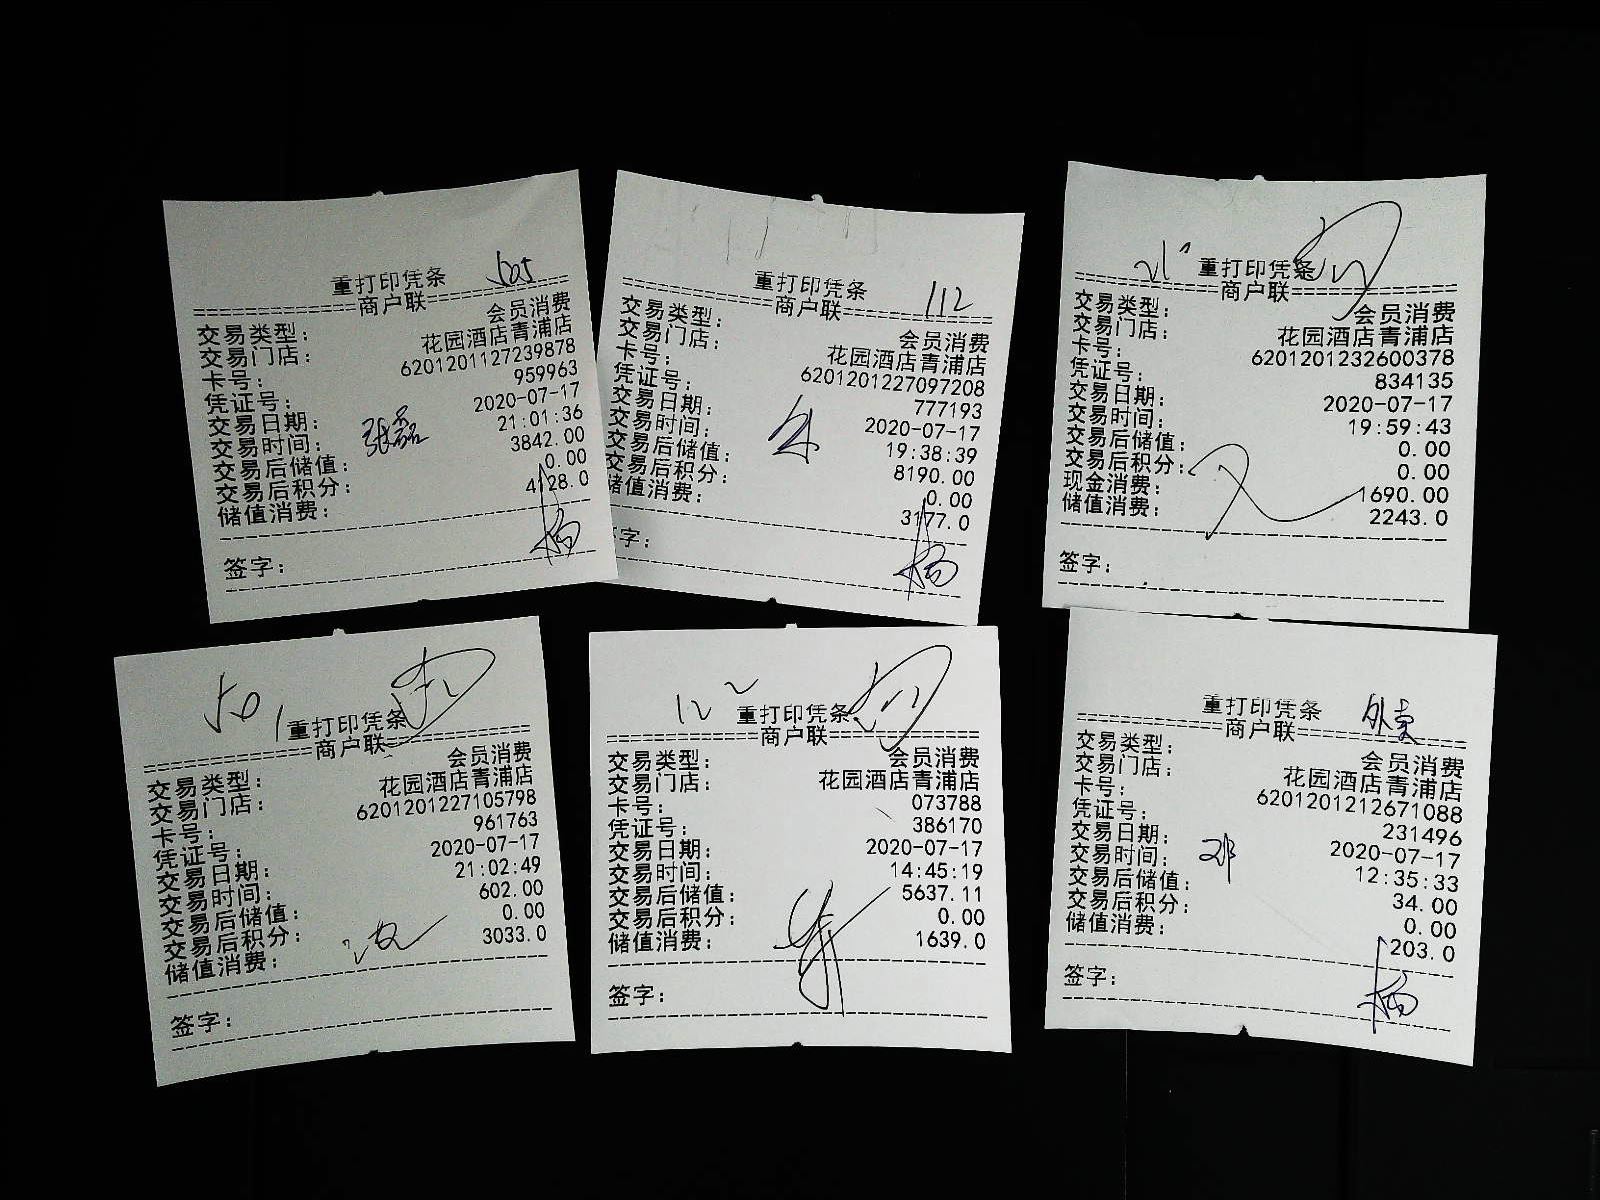 505
重打印凭条
商户联
交易类型: 会员消费
交易门店: 花园酒店青浦店
卡号: 6201201127239878
凭证号: 959963
交易日期: 2020-07-17
交易时间: 21:01:36
交易后储值: 3842.00
交易后积分: 0.00
储值消费: 4128.0
张磊
签字:
杨
112
重打印凭条
商户联
交易类型: 会员消费
交易门店: 花园酒店青浦店
卡号: 6201201227097208
凭证号: 777193
交易日期: 2020-07-17
交易时间: 19:38:39
交易后储值: 8190.00
交易后积分: 0.00
储值消费: 3177.0
字:
杨
重打印凭条
商户联
交易类型: 会员消费
交易门店: 花园酒店青浦店
卡号: 6201201232600378
凭证号: 834135
交易日期: 2020-07-17
交易时间: 19:59:43
交易后储值: 0.00
交易后积分: 0.00
现金消费: 1690.00
储值消费: 2243.0
签字:
501
重打印凭条
商户联
交易类型: 会员消费
交易门店: 花园酒店青浦店
卡号: 6201201227105798
凭证号: 961763
交易日期: 2020-07-17
交易时间: 21:02:49
交易后储值: 602.00
交易后积分: 0.00
储值消费: 3033.0
签字:
重打印凭条
商户联
交易类型: 会员消费
交易门店: 花园酒店青浦店
卡号: 073788
凭证号: 386170
交易日期: 2020-07-17
交易时间: 14:45:19
交易后储值: 5637.11
交易后积分: 0.00
储值消费: 1639.0
签字:
外卖
重打印凭条
商户联
交易类型: 会员消费
交易门店: 花园酒店青浦店
卡号: 6201201212671088
凭证号: 231496
交易日期: 2020-07-17
交易时间: 12:35:33
交易后储值: 34.00
交易后积分: 0.00
储值消费: 203.0
邓
签字:
杨